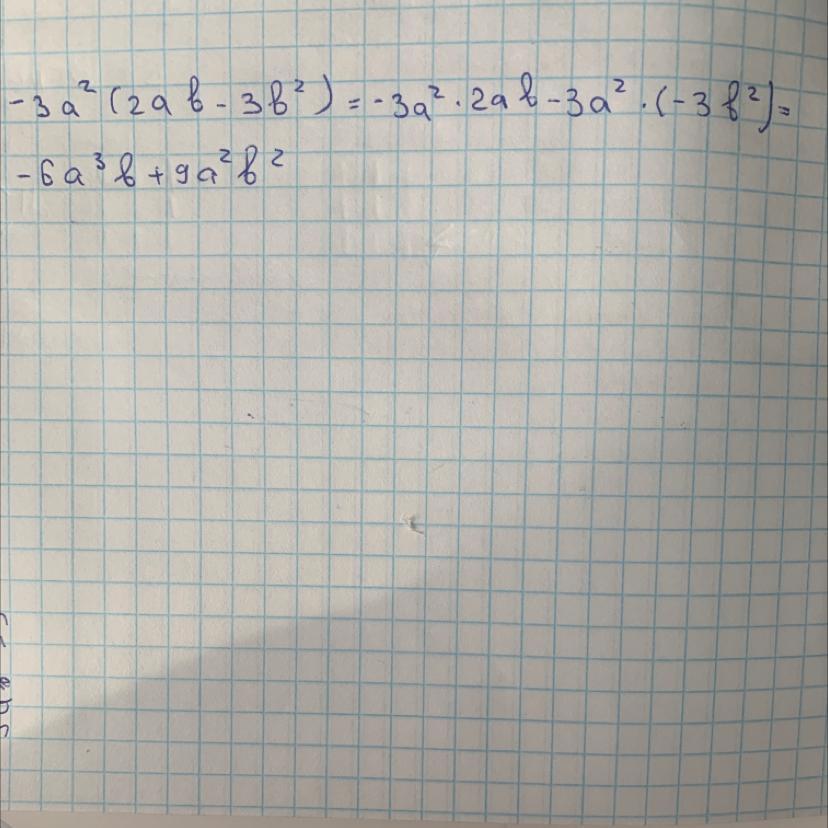 -3a²(2ab-3b²)=-3a²·2ab-3a²·(-3b²)=
-6a³b+9a²b²